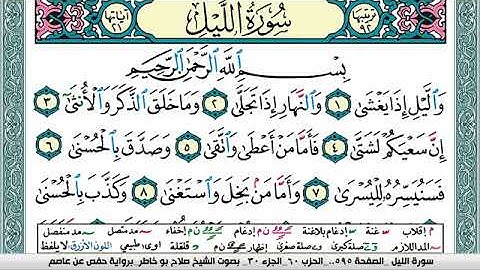 ترتيبها ٩٢ سُورَةُ اللَّيْلِ آياتها ٢١
بِسْمِ اللَّهِ الرَّحْمَٰنِ الرَّحِيمِ
وَاللَّيْلِ إِذَا يَغْشَىٰ ١ وَالنَّهَارِ إِذَا تَجَلَّىٰ ٢ وَمَا خَلَقَ الذَّكَرَ وَالْأُنثَىٰ ٣
إِنَّ سَعْيَكُمْ لَشَتَّىٰ ٤ فَأَمَّا مَنْ أَعْطَىٰ وَاتَّقَىٰ ٥ وَصَدَّقَ بِالْحُسْنَىٰ ٦
فَسَنُيَسِّرُهُ لِلْيُسْرَىٰ ٧ وَأَمَّا مَنْ بَخِلَ وَاسْتَغْنَىٰ ٨ وَكَذَّبَ بِالْحُسْنَىٰ
م إقلاب غنة إدغام بلاغنة إدغام إخفاء مد متصل مد منفصل
المد اللازم صلة كبرى صلة صغرى إظهار قلقلة طبيعي اللون الأزرق لا يلفظ
سورة الليل _ الصفحة ٥٩٥ _ الحزب ٦٠ _ الجزء ٣٠ _ بصوت الشيخ صلاح بو خاطر _ برواية حفص عن عاصم